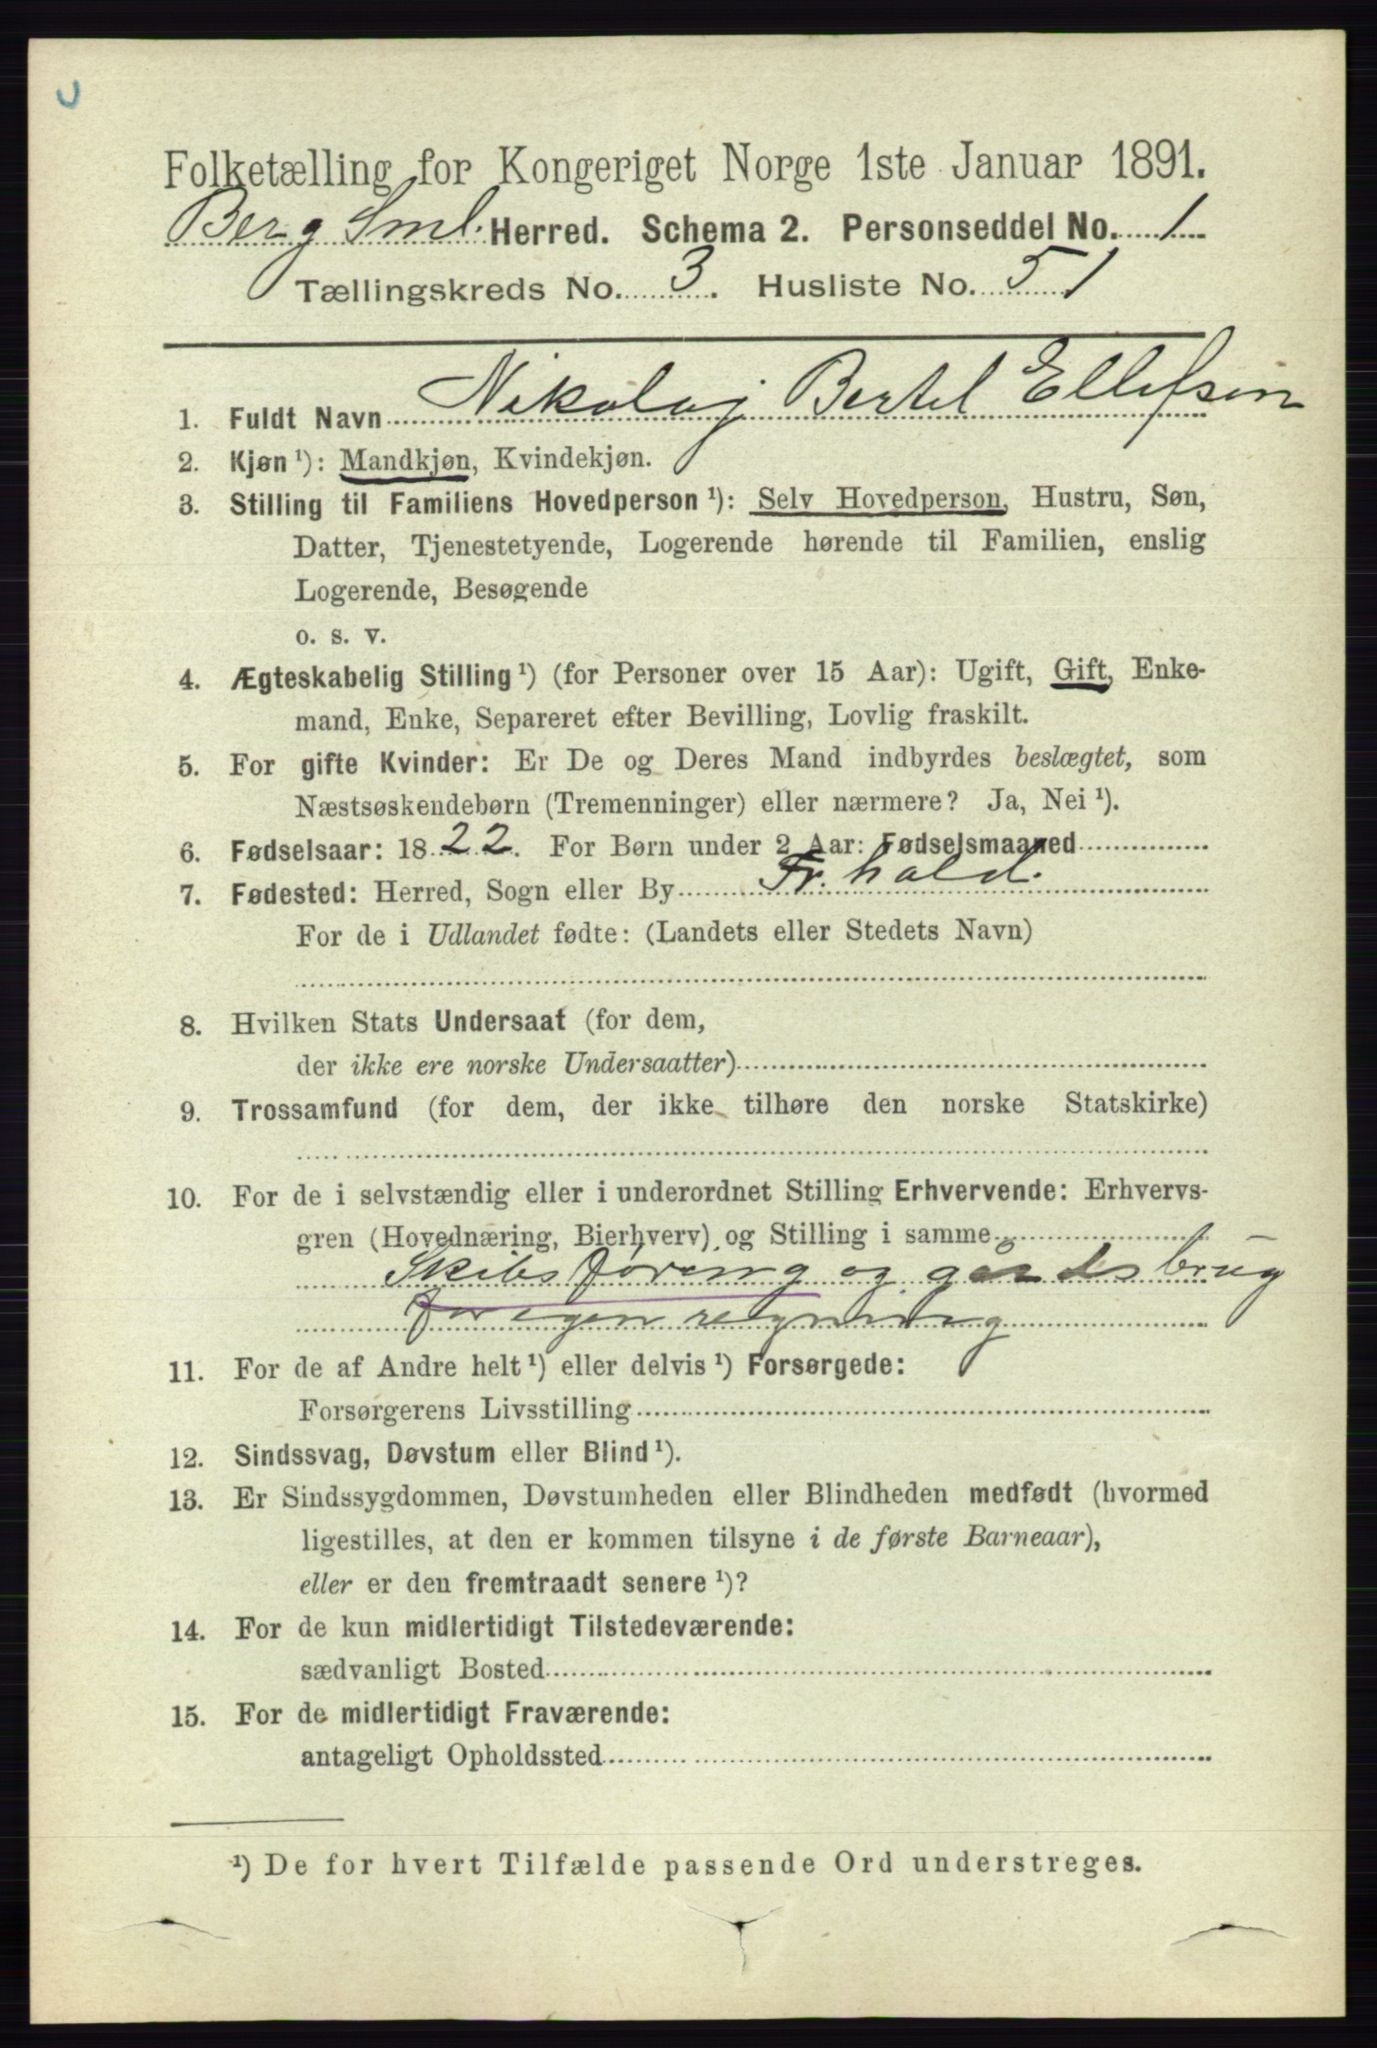 Folketælling for Kongeriget Norge 1ste Januar 1891.
Berg Sml. Herred. Schema 2. Personseddel No. 1
Tællingskreds No. 3. Husliste No. 51
1. Fuldt Navn Nikolaj Bertel Ellefsen
2. Kjøn ¹): Mandkjøn, Kvindekjøn.
3. Stilling til Familiens Hovedperson ¹): Selv Hovedperson, Hustru, Søn,
Datter, Tjenestetyende, Logerende hørende til Familien, enslig
Logerende, Besøgende
o. s. v.
4. Ægteskabelig Stilling ¹) (for Personer over 15 Aar): Ugift, Gift, Enke-
mand, Enke, Separeret efter Bevilling, Lovlig fraskilt.
5. For gifte Kvinder: Er De og Deres Mand indbyrdes beslægtet, som
Næstsøskendebørn (Tremenninger) eller nærmere? Ja, Nei ¹).
6. Fødselsaar: 1822. For Børn under 2 Aar: Fødselsmaaned
7. Fødested: Herred, Sogn eller By Fr.hald.
For de i Udlandet fødte: (Landets eller Stedets Navn)
8. Hvilken Stats Undersaat (for dem,
der ikke ere norske Undersaatter)
9. Trossamfund (for dem, der ikke tilhøre den norske Statskirke)
10. For de i selvstændig eller i underordnet Stilling Erhvervende: Erhvervs-
gren (Hovednæring, Bierhverv) og Stilling i samme
Skibsføring og gårdsbrug
for egen regning
11. For de af Andre helt ¹) eller delvis ¹) Forsørgede:
Forsørgerens Livsstilling
12. Sindssvag, Døvstum eller Blind ¹).
13. Er Sindssygdommen, Døvstumheden eller Blindheden medfødt (hvormed
ligestilles, at den er kommen tilsyne i de første Barneaar),
eller er den fremtraadt senere ¹)?
14. For de kun midlertidigt Tilstedeværende:
sædvanligt Bosted
15. For de midlertidigt Fraværende:
antageligt Opholdssted
¹) De for hvert Tilfælde passende Ord understreges.